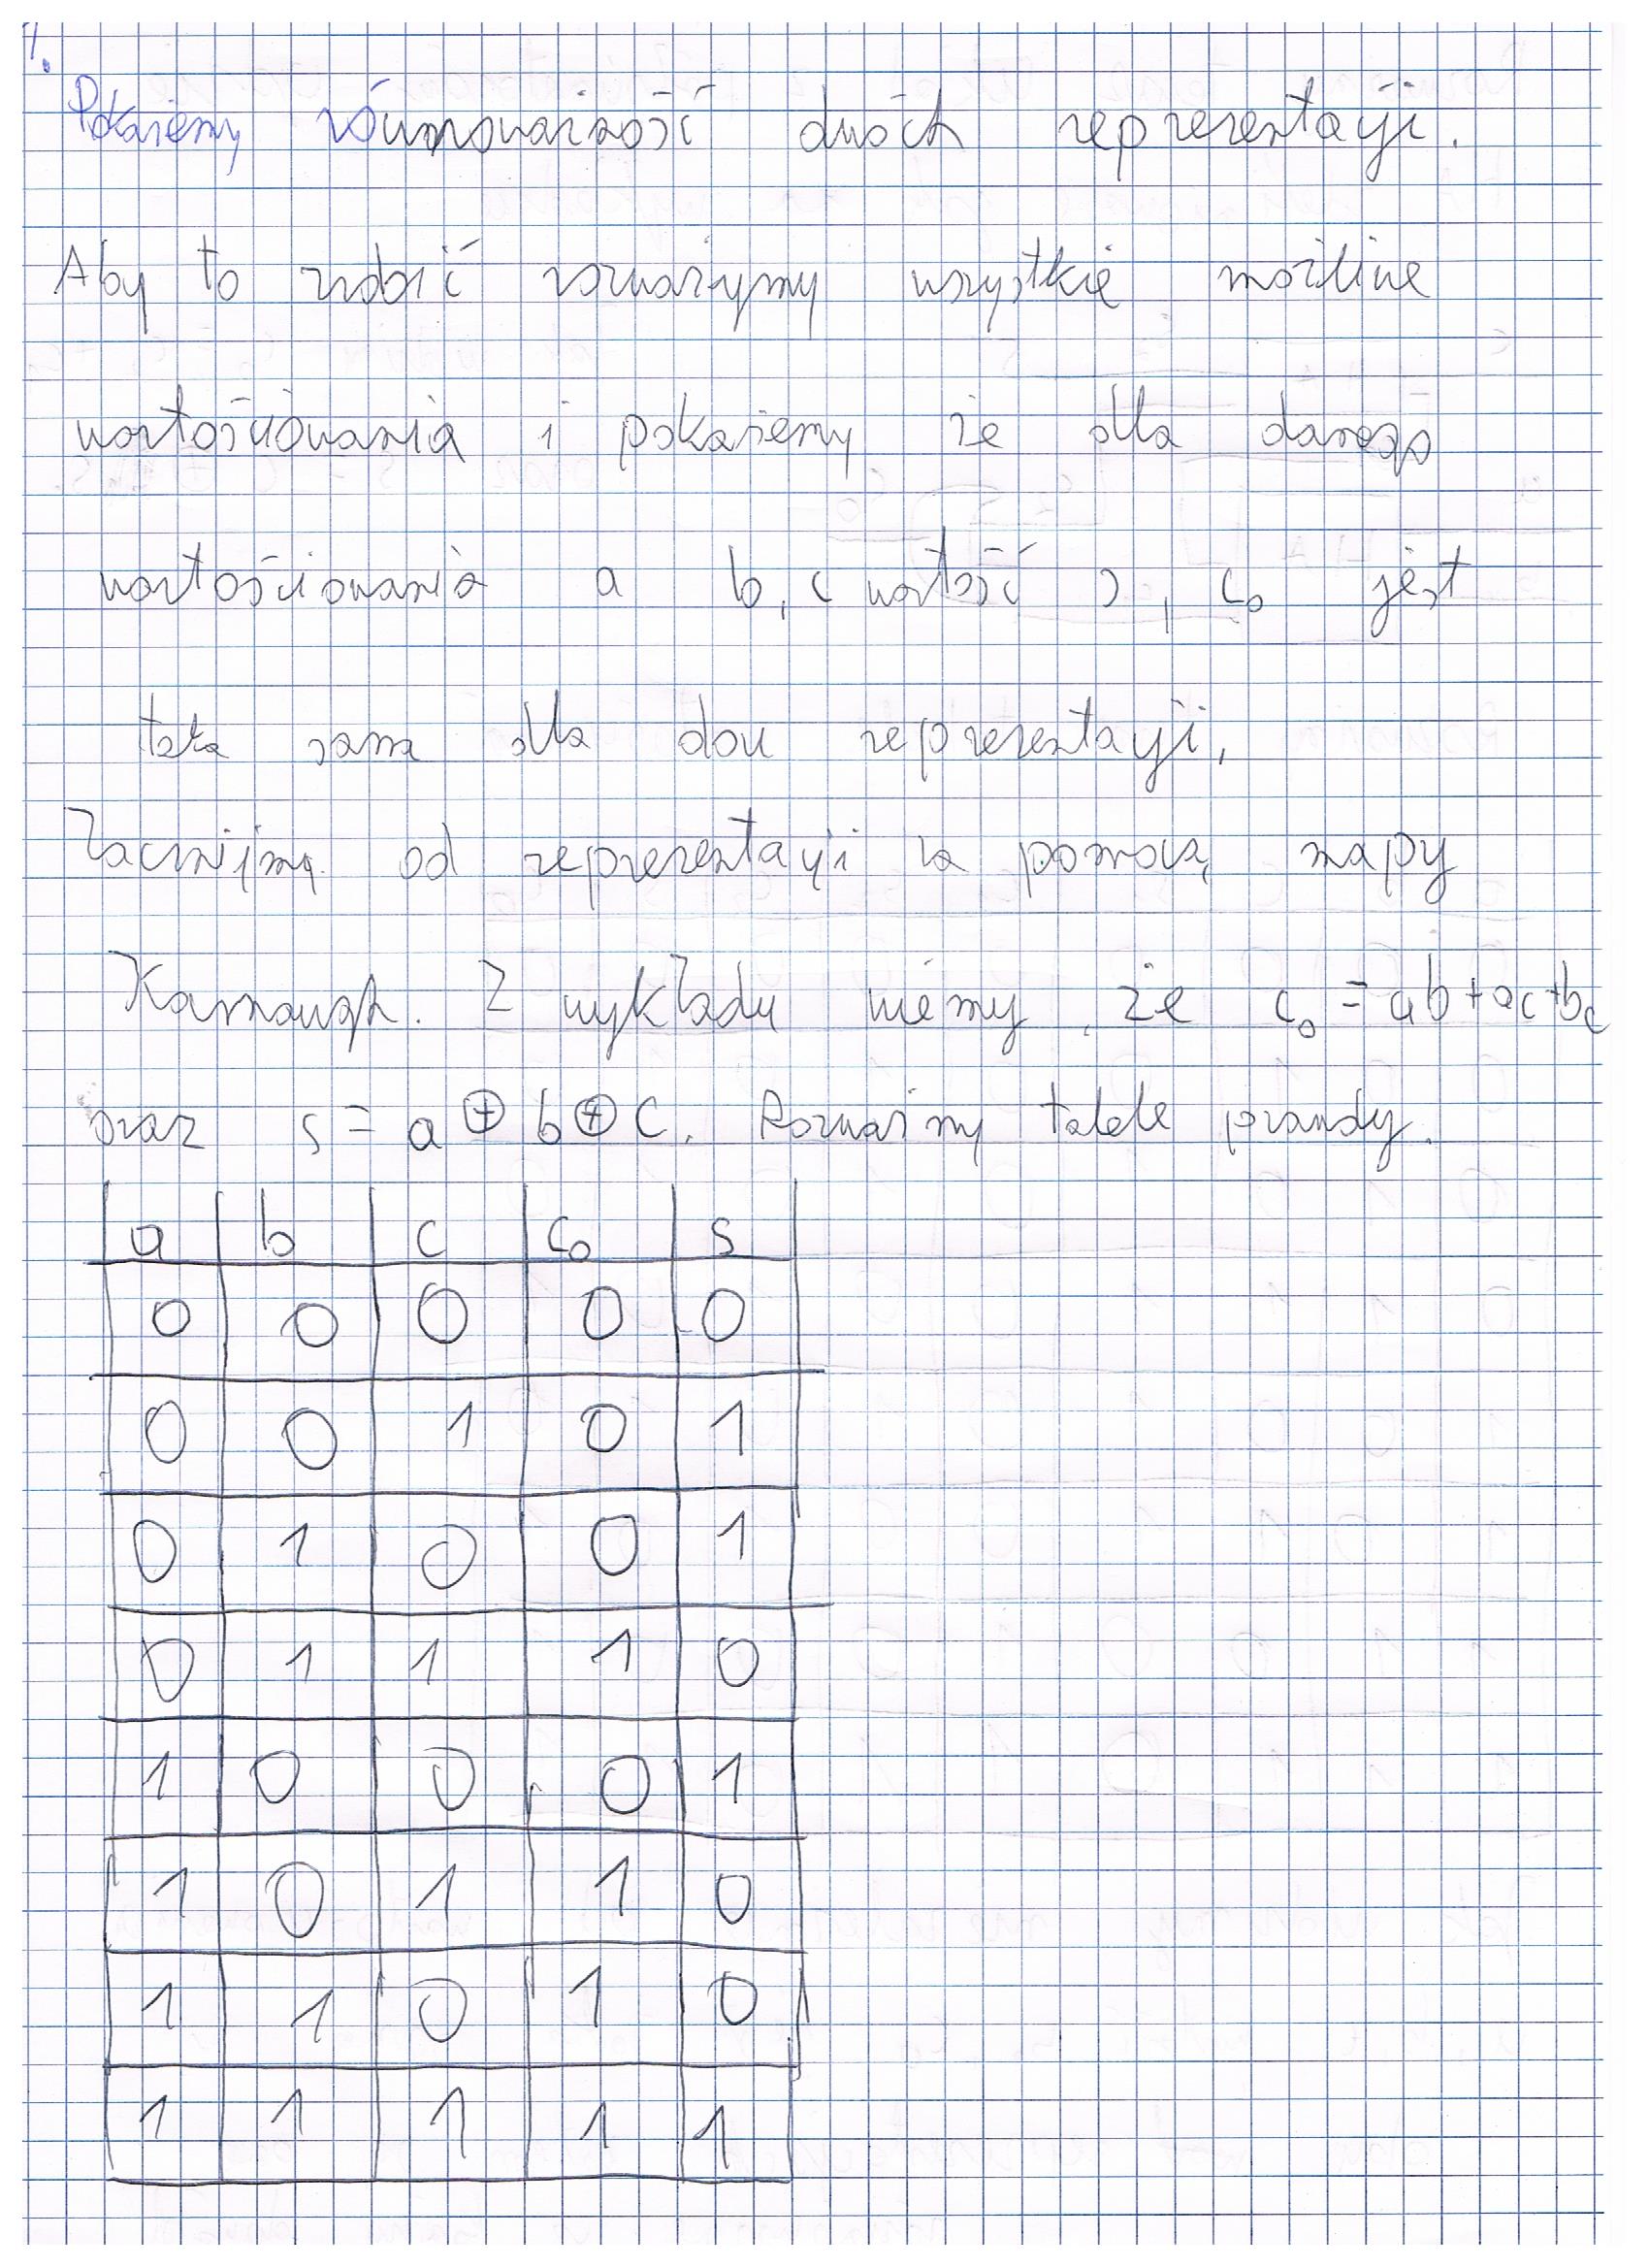 1.
Pokażemy równoważność dwóch reprezentacji.
Aby to zrobić rozważymy wszystkie możliwe
wartościowania i pokażemy że dla danego
wartościowania a b, c wartość s, c₀ jest
taka sama dla dwu reprezentacji.
Zacznijmy od reprezentacji za pomocą mapy
Karnaugh. Z wykładu wiemy, że c₀ = ab + ac + bc
oraz s = a ⊕ b ⊕ c. Rozważmy tabele prawdy.
a b c c₀ s
0 0 0 0 0
0 0 1 0 1
0 1 0 0 1
0 1 1 1 0
1 0 0 0 1
1 0 1 1 0
1 1 0 1 0
1 1 1 1 1